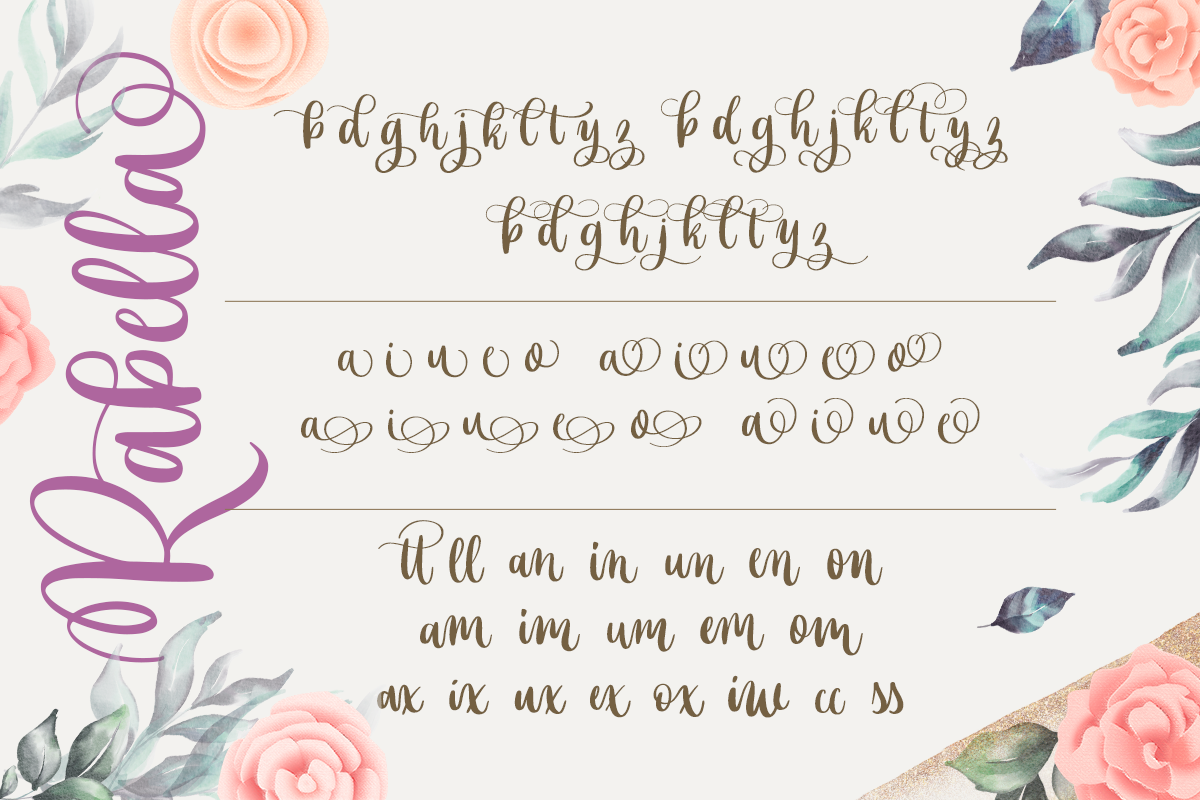 Rabella
b d g h j k l t y z b d g h j k l t y z
b d g h j k l t y z
a i u e o a i u e o
a i u e o a i u e
tt ll an in un en on
am im um em om
ax ix ux ex ox iw cc ss